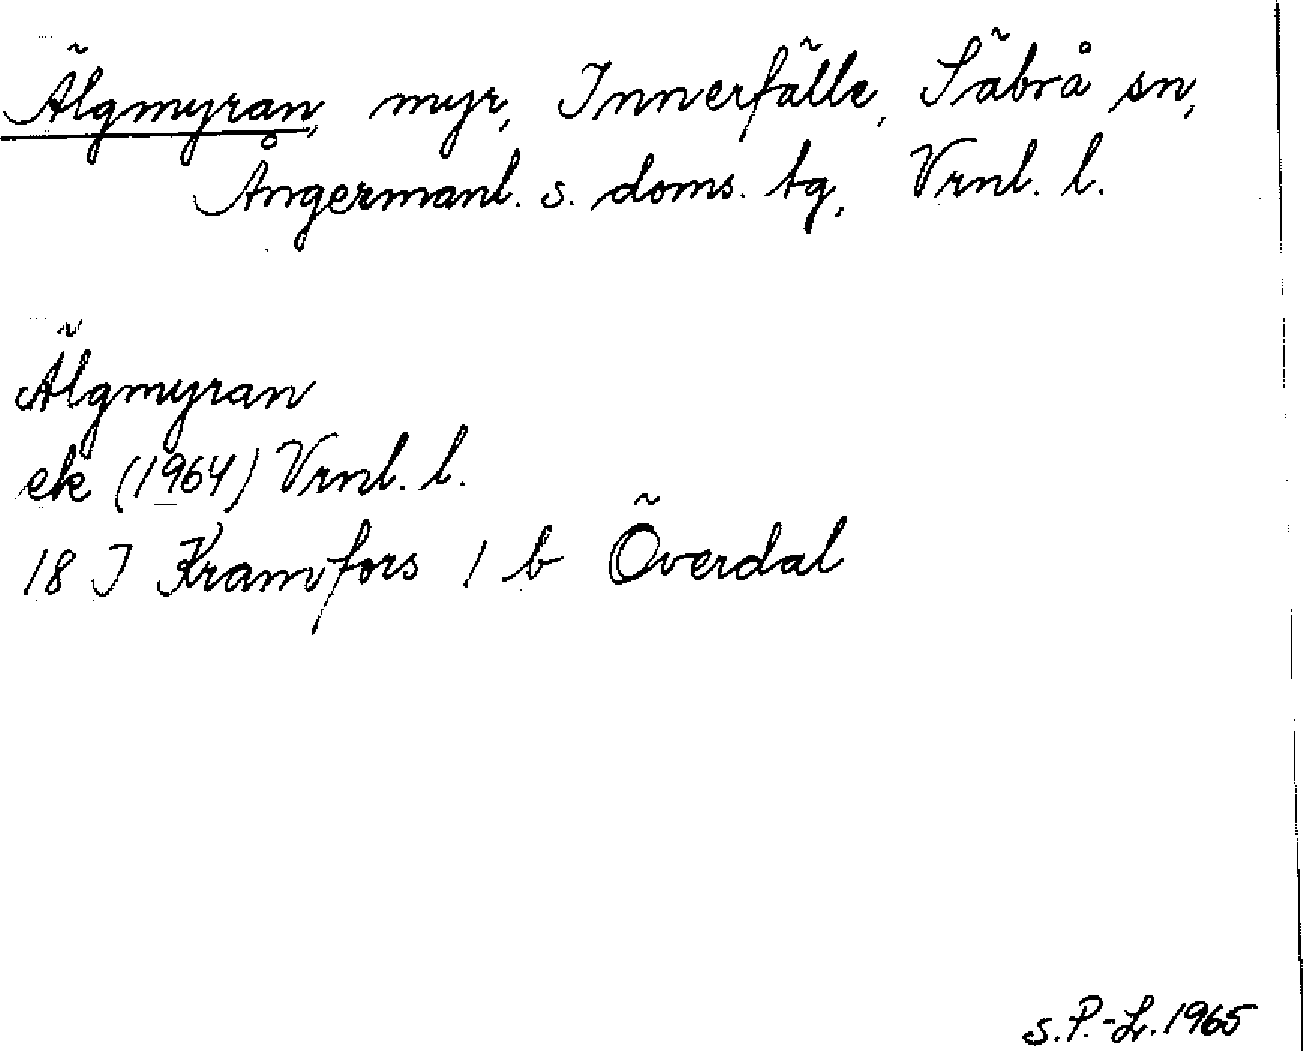 Älgmyran, myr, Innerfälle, Säbrå sn,
Ångermanl. s. doms. tg, Vrnl. l.
Älgmyran
ek (1964) Vrnl. l.
18 I Kramfors 1 b Överdal
S.P.-L. 1965